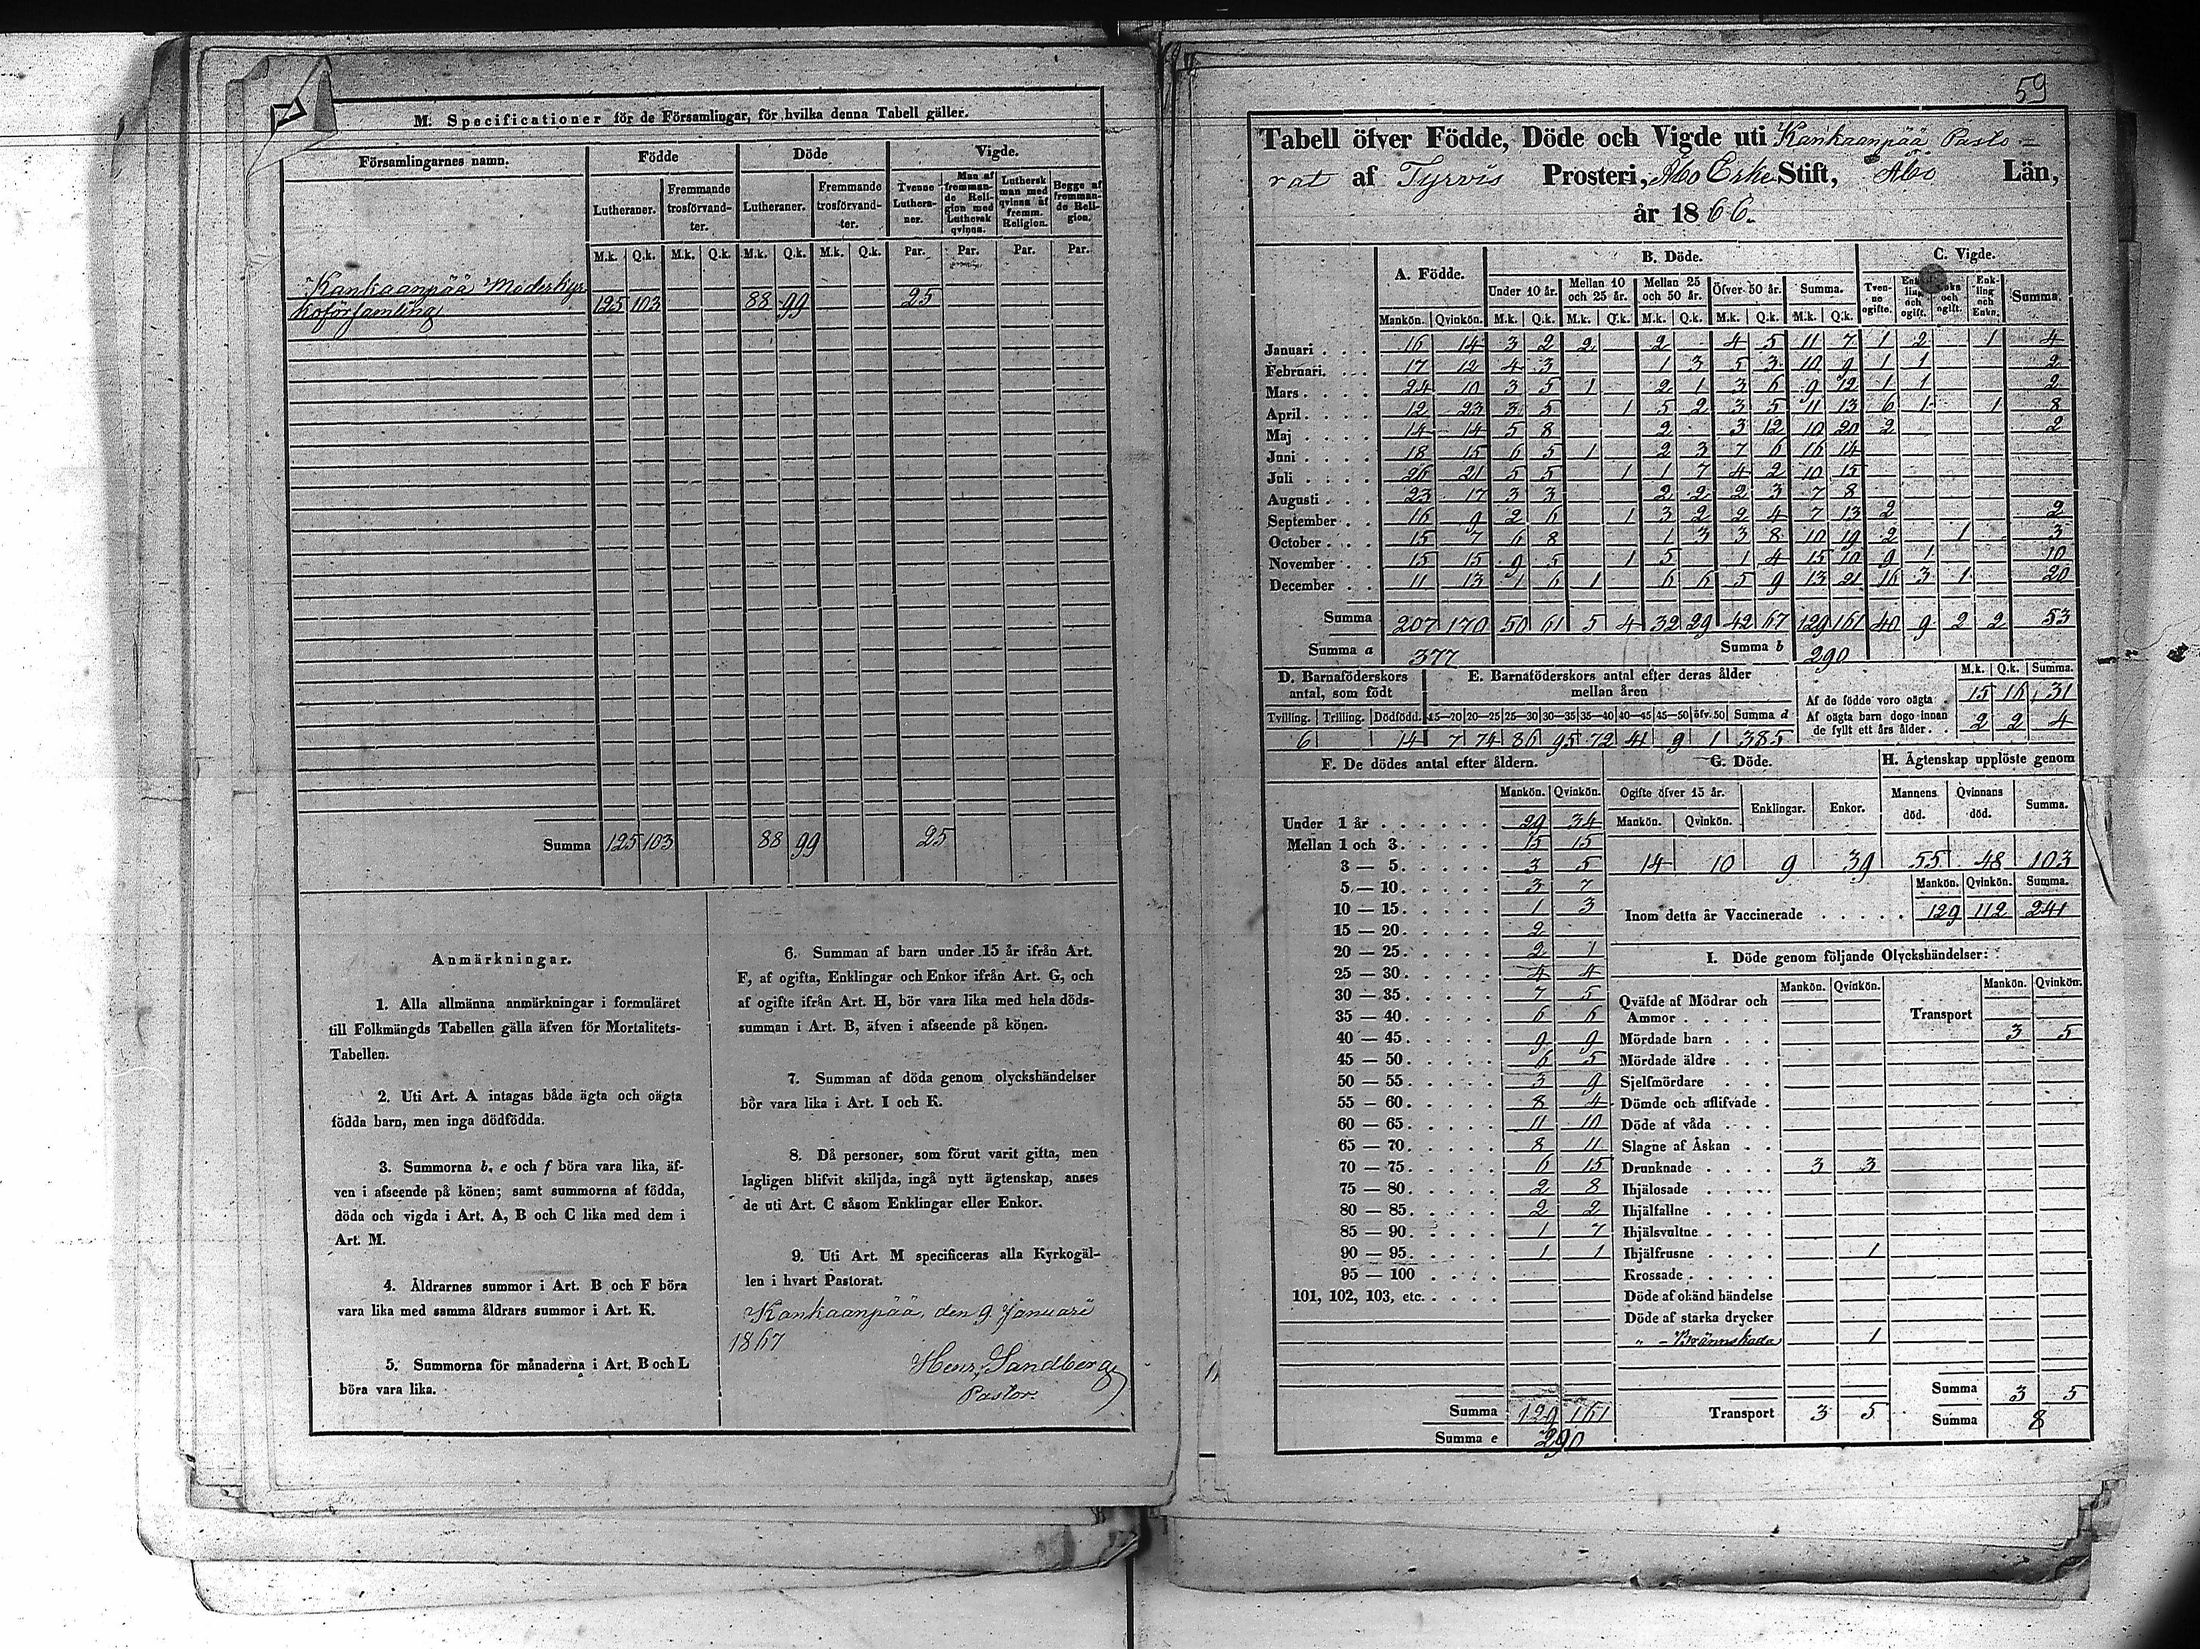 M. Specificationer för de Församlingar, för hvilka denna Tabell gäller.
Församlingarnes namn. Födde Döde Vigde.
Lutheraner. Fremmande trosförvandter. Lutheraner. Fremmande trosförvandter. Tvenne Lutheraner. Man af fremmande Religion med Luthersk qvinna. Luthersk man med qvinna af fremm. Religion. Begge af fremmande Religion.
M.k. Q.k. M.k. Q.k. M.k. Q.k. M.k. Q.k. Par. Par. Par. Par.
Kankaanpää Moderkyr
koförsamling 125 103 88 99 25
Summa 125 103 88 99 25
Anmärkningar.
1. Alla allmänna anmärkningar i formuläret
till Folkmängds Tabellen gälla äfven för Mortalitets-
Tabellen.
2. Uti Art. A intagas både ägta och oägta
födda barn, men inga dödfödda.
3. Summorna b, e och f böra vara lika, äf-
ven i afseende på könen; samt summorna af födda,
döda och vigda i Art. A, B och C lika med dem i
Art. M.
4. Åldrarnes summor i Art. B och F böra
vara lika med samma åldrars summor i Art. K.
5. Summorna för månaderna i Art. B och L
böra vara lika.
6. Summan af barn under 15 år ifrån Art.
F, af ogifta, Enklingar och Enkor ifrån Art. G, och
af ogifte ifrån Art. H, bör vara lika med hela döds-
summan i Art. B, äfven i afseende på könen.
7. Summan af döda genom olyckshändelser
bör vara lika i Art. I och K.
8. Då personer, som förut varit gifta, men
lagligen blifvit skiljda, ingå nytt ägtenskap, anses
de uti Art. C såsom Enklingar eller Enkor.
9. Uti Art. M specificeras alla Kyrkogäl-
len i hvart Pastorat.
Kankaanpää, den 9 Januari
1867
Henr. Sandberg
Pastor.
59
Tabell öfver Födde, Döde och Vigde uti Kankaanpää Pasto=
rat af Tyrvis Prosteri, Åbo Erke Stift, Åbo Län,
år 1866.
A. Födde. B. Döde. C. Vigde.
Under 10 år. Mellan 10 och 25 år. Mellan 25 och 50 år. Öfver 50 år. Summa. Tvenne ogifte. Enkling och ogift. och ogift. Enkling och Enka. Summa.
Mankön. Qvinkön. M.k. Q.k. M.k. Q.k. M.k. Q.k. M.k. Q.k. M.k. Q.k.
Januari 16 14 3 2 2 2 4 5 11 7 1 2 1 4
Februari. 17 12 4 3 1 3 5 3 10 9 1 1 2
Mars 24 10 3 5 1 2 1 3 6 9 12 1 1 2
April 12 23 3 5 1 5 2 3 5 11 13 6 1 1 8
Maj 14 14 5 8 2 3 12 10 20 2 2
Juni 18 15 6 5 1 2 3 7 6 16 14
Juli 26 21 5 5 1 1 7 4 2 10 15
Augusti 23 17 3 3 2 2 2 3 7 8
September 16 9 2 6 1 3 2 2 4 7 13 2 2
October 15 7 6 8 1 3 3 8 10 19 2 1 3
November 15 15 9 5 1 5 1 4 15 10 9 1 10
December 11 13 1 6 1 6 6 5 9 13 21 16 3 1 20
Summa 207 170 50 61 5 4 32 29 42 67 129 161 40 9 2 2 53
Summa a 377 Summa b 290
D. Barnaföderskors antal, som födt
Tvilling. Trilling. Dödfödd.
6 14
E. Barnaföderskors antal efter deras ålder mellan åren
15—20 20—25 25—30 30—35 35—40 40—45 45—50 öfv. 50 Summa d
7 74 86 95 72 41 9 1 385
M.k. Q.k. Summa.
Af de födde voro oägta 15 16 31
Af oägta barn dogo innan
de fyllt ett års ålder 2 2 4
F. De dödes antal efter åldern.
Mankön. Qvinkön.
Under 1 år 29 34
Mellan 1 och 3 15 15
3 — 5 3 5
5 — 10 3 7
10 — 15 1 3
15 — 20 2
20 — 25 2 1
25 — 30 4 4
30 — 35 7 5
35 — 40 6 6
40 — 45 9 9
45 — 50 6 5
50 — 55 3 9
55 — 60 8 4
60 — 65 11 10
65 — 70 8 11
70 — 75 6 15
75 — 80 2 8
80 — 85 2 2
85 — 90 1 7
90 — 95 1 1
95 — 100
101, 102, 103, etc.
Summa 129 161
Summa e 290
G. Döde.
Ogifte öfver 15 år. Enklingar. Enkor.
Mankön. Qvinkön.
14 10 9 39
H. Ägtenskap upplöste genom
Mannens död. Qvinnans död. Summa.
55 48 103
Mankön. Qvinkön. Summa.
Inom detta år Vaccinerade 129 112 241
I. Döde genom följande Olyckshändelser:
Mankön. Qvinkön. Mankön. Qvinkön.
Qväfde af Mödrar och
Ammor
Transport 3 5
Mördade barn
Mördade äldre
Sjelfmördare
Dömde och aflifvade
Döde af våda
Slagne af Åskan
Drunknade 3 3
Ihjälosade
Ihjälfallne
Ihjälsvultne
Ihjälfrusne 1
Krossade
Döde af okänd händelse
Döde af starka drycker
„ - Brännskada 1
Summa 3 5
Transport 3 5 Summa 8